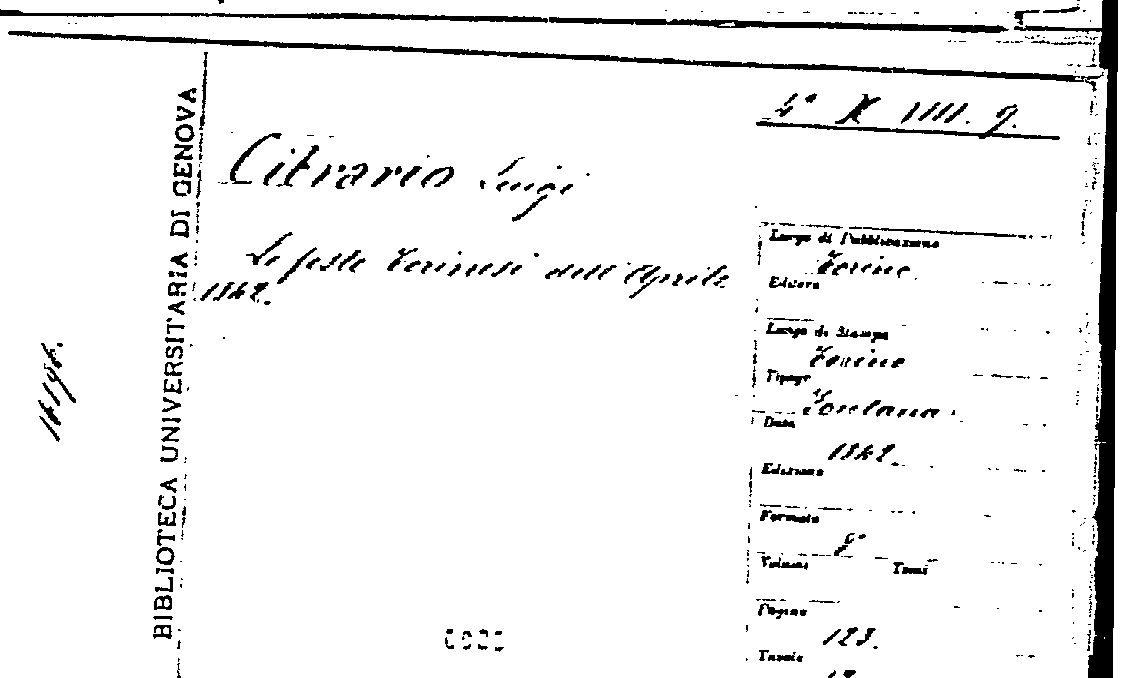 4ª X IIII. 9.
Citrario Luigi
Le feste Torinesi dell'Aprile
1842.
BIBLIOTECA UNIVERSITARIA DI GENOVA
Luogo di Pubblicazione
Torino.
Editore
Luogo di Stampa
Torino
Tipogr
Fontana.
Data
1842.
Edizione
Formato
Volumi Tomi
Pagine
123.
Tavole